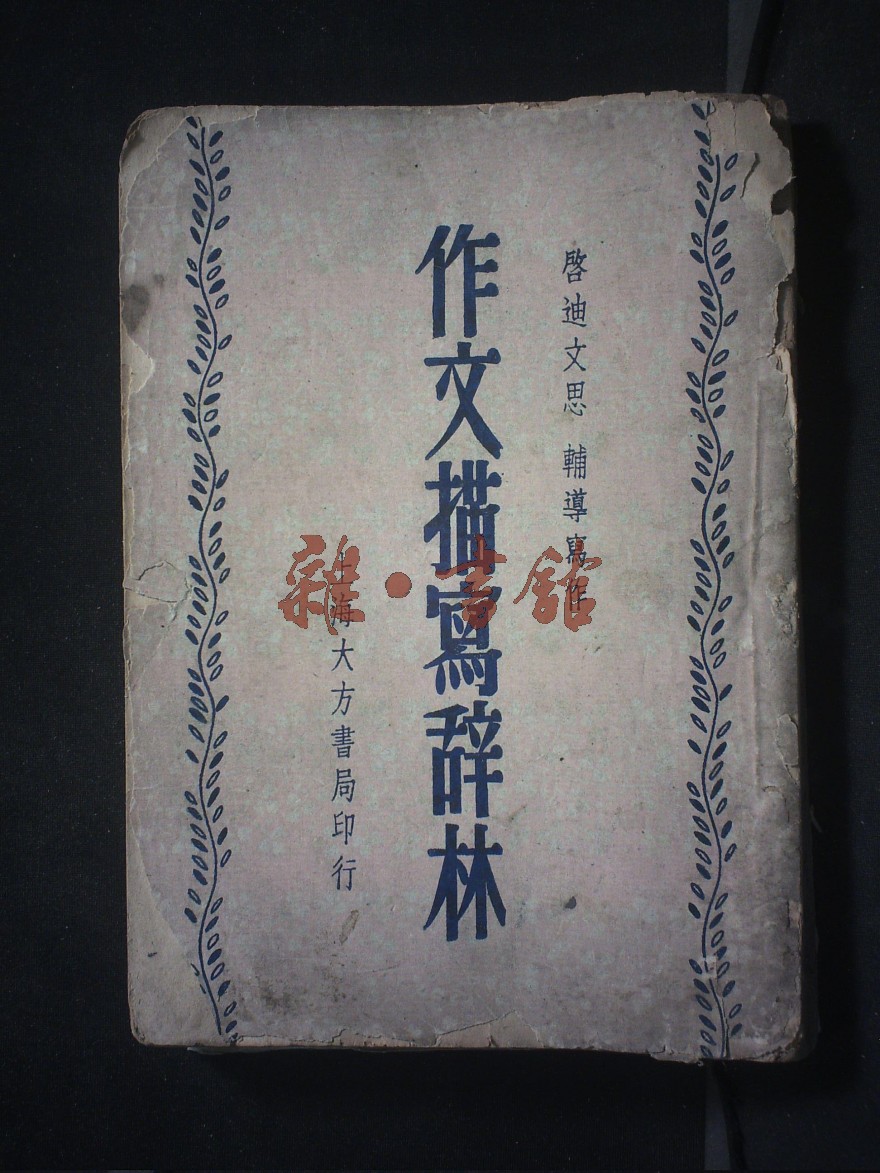 啓迪文思 輔導寫作
作文描寫辭林
上海大方書局印行
雜·書館